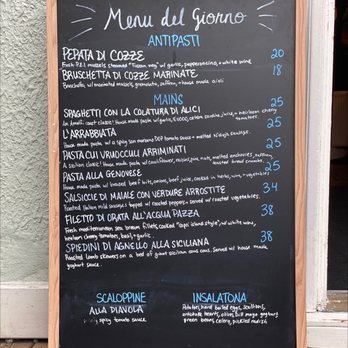 Menu del Giorno
ANTIPASTI
PEPATA DI COZZE 20
Fresh P.E.I. mussels steamed "Tuscan way" w/ garlic, pepperoncino, + white wine
BRUSCHETTA DI COZZE MARINATE 18
Bruschetta w/ marinated mussels, gremolata, saffron, + house made aioli
MAINS
SPAGHETTI CON LA COLATURA DI ALICI 25
An Amalfi coast classic! House made pasta w/ garlic, juice, + heirloom cherry
tomatoes.
L'ARRABBIATA 25
House made pasta w/ a spicy San Marzano DOP tomato sauce + melted sausage.
PASTA CUI VRUOCCULI ARRIMINATI 25
A Sicilian classic! House made pasta w/ cauliflower, raisins, pine nuts, melted anchovies, saffron,
toasted bread crumbs.
PASTA ALLA GENOVESE 25
House made pasta w/ braised beef, onions, herbs, wine, + vegetables
SALSICCE DI MAIALE CON VERDURE ARROSTITE 34
Roasted Italian mild sausages topped w/ roasted peppers, served w/ roasted vegetables.
FILETTO DI ORATA ALL'ACQUA PAZZA 38
Fresh mediterranean sea bream fillets, cooked "Capri island style", w/ white wine,
heirloom cherry tomatoes, basil, + garlic.
SPIEDINI DI AGNELLO ALLA SICILIANA 38
Roasted lamb skewers on a bed of giant Sicilian couscous. Served w/ house made
yoghurt sauce.
SCALOPPINE INSALATONA
ALLA DIAVOLA Potatoes, hard boiled eggs, scallions,
spicy tomato sauce artichoke hearts, olives, yoghurt
green beans, celery, pickled